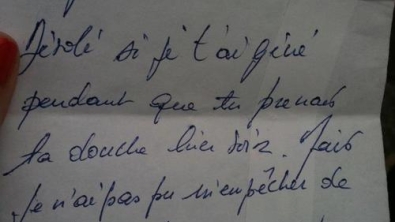 Désolé si je t'ai gêné
pendant que tu prenais
ta douche hier soir. Mais
je n'ai pas pu m'empêcher de